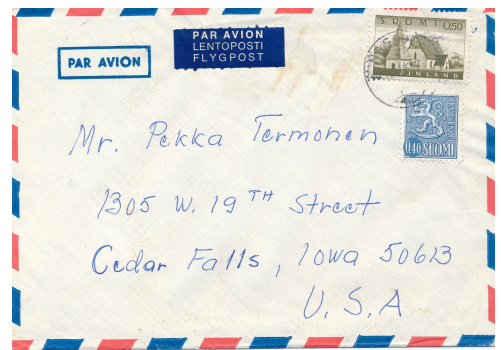 PAR AVION
LENTOPOSTI
FLYGPOST
PAR AVION
SUOMI 0,50
FINLAND
0,40 SUOMI
FINLAND
Mr. Pekka Termonen
1305 W. 19TH Street
Cedar Falls, Iowa 50613
U.S.A